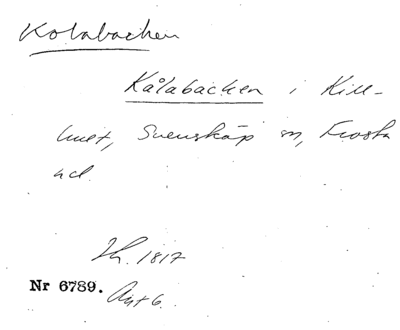 Kolabacken
Kålabacken i Kill-
huet, Svensköp sn, Frosta
hd.
Th. 1817
Nr 6789.
Avt 6.